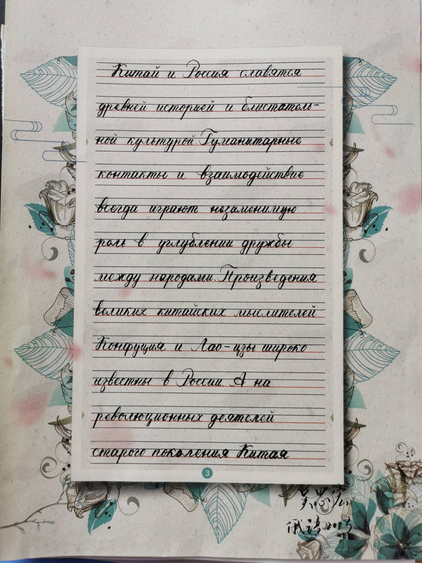 Китай и Россия славятся
древней историей и блистатель-
ной культурой. Гуманитарные
контакты и взаимодействие
всегда играют незаменимую
роль в углублении дружбы
между народами. Произведения
великих китайских мыслителей
Конфуция и Лао-цзы широко
известны в России. А на
революционных деятелей
старого поколения Китая
3